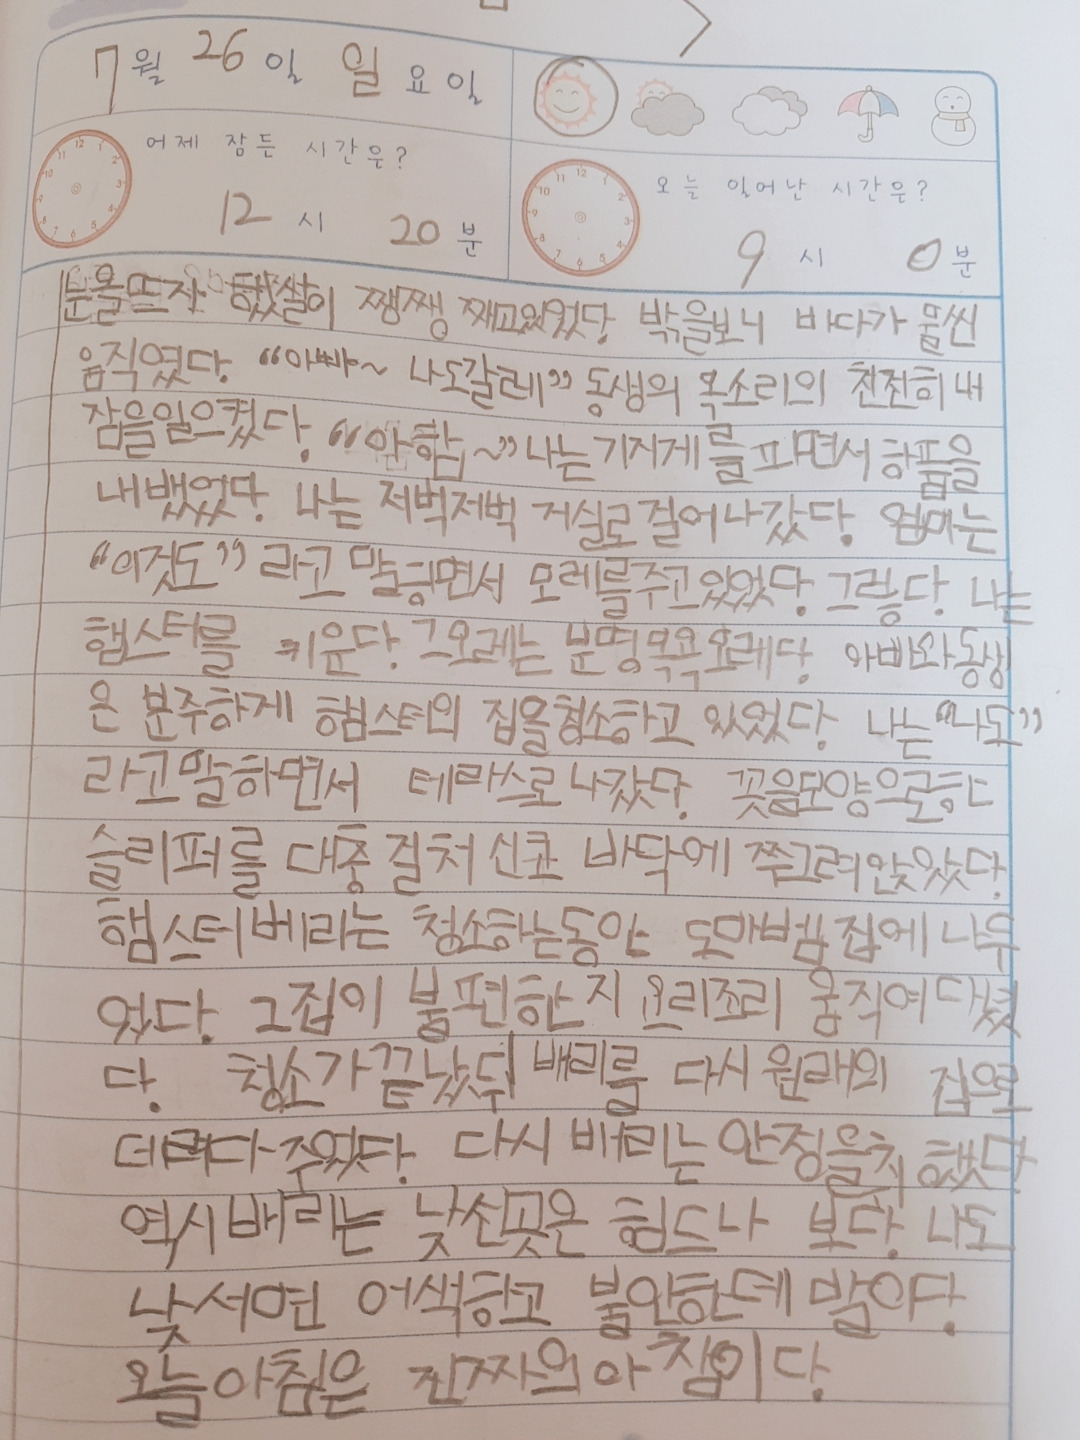 7월 26일 일요일
어제 잠든 시간은?
12시 20분
오늘 일어난 시간은?
9시 0분
분을뜨자 햇살이 쨍쨍 째고있었다. 밖을보니 바다가 물씬
움직였다. “아빠~ 나도갈레” 동생의 목소리의 천천히 내
잠을일으켰다. “아함~” 나는 기지게를 피면서 하품을
내뱄었다. 나는 저벅저벅 거실로걸어나갔다. 엄마는
“이것도” 라고 말하면서 모레를주고있었다. 그렇다. 나는
햄스터를 키운다. 그모레는 분명 목욕모레다. 아빠와동생
은 분주하게 햄스터의 집을청소하고 있었다. 나는“나도”
라고말하면서 테라스로나갔다. 꽃음모양으로한
슬리퍼를 대충 걸처 신코 바닥에 쭈그려앉았다.
햄스터베리는 청소하는동안 도마뱀집에 나두
었다. 그집이 불편한지 요리조리 움직여다녔
다. 청소가끝났뒤 배리를 다시 원래의 집으로
데려다주었다. 다시 배리는 안정을취했다
역시배리는 낮선곳은 힘드나 보다. 나도
낮서면 어색하고 불안한데 말이다.
오늘아침은 진짜의아침이다.